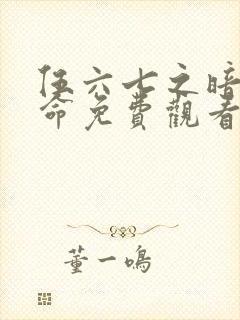 伍六七之暗
命免費觀看
董一鳴